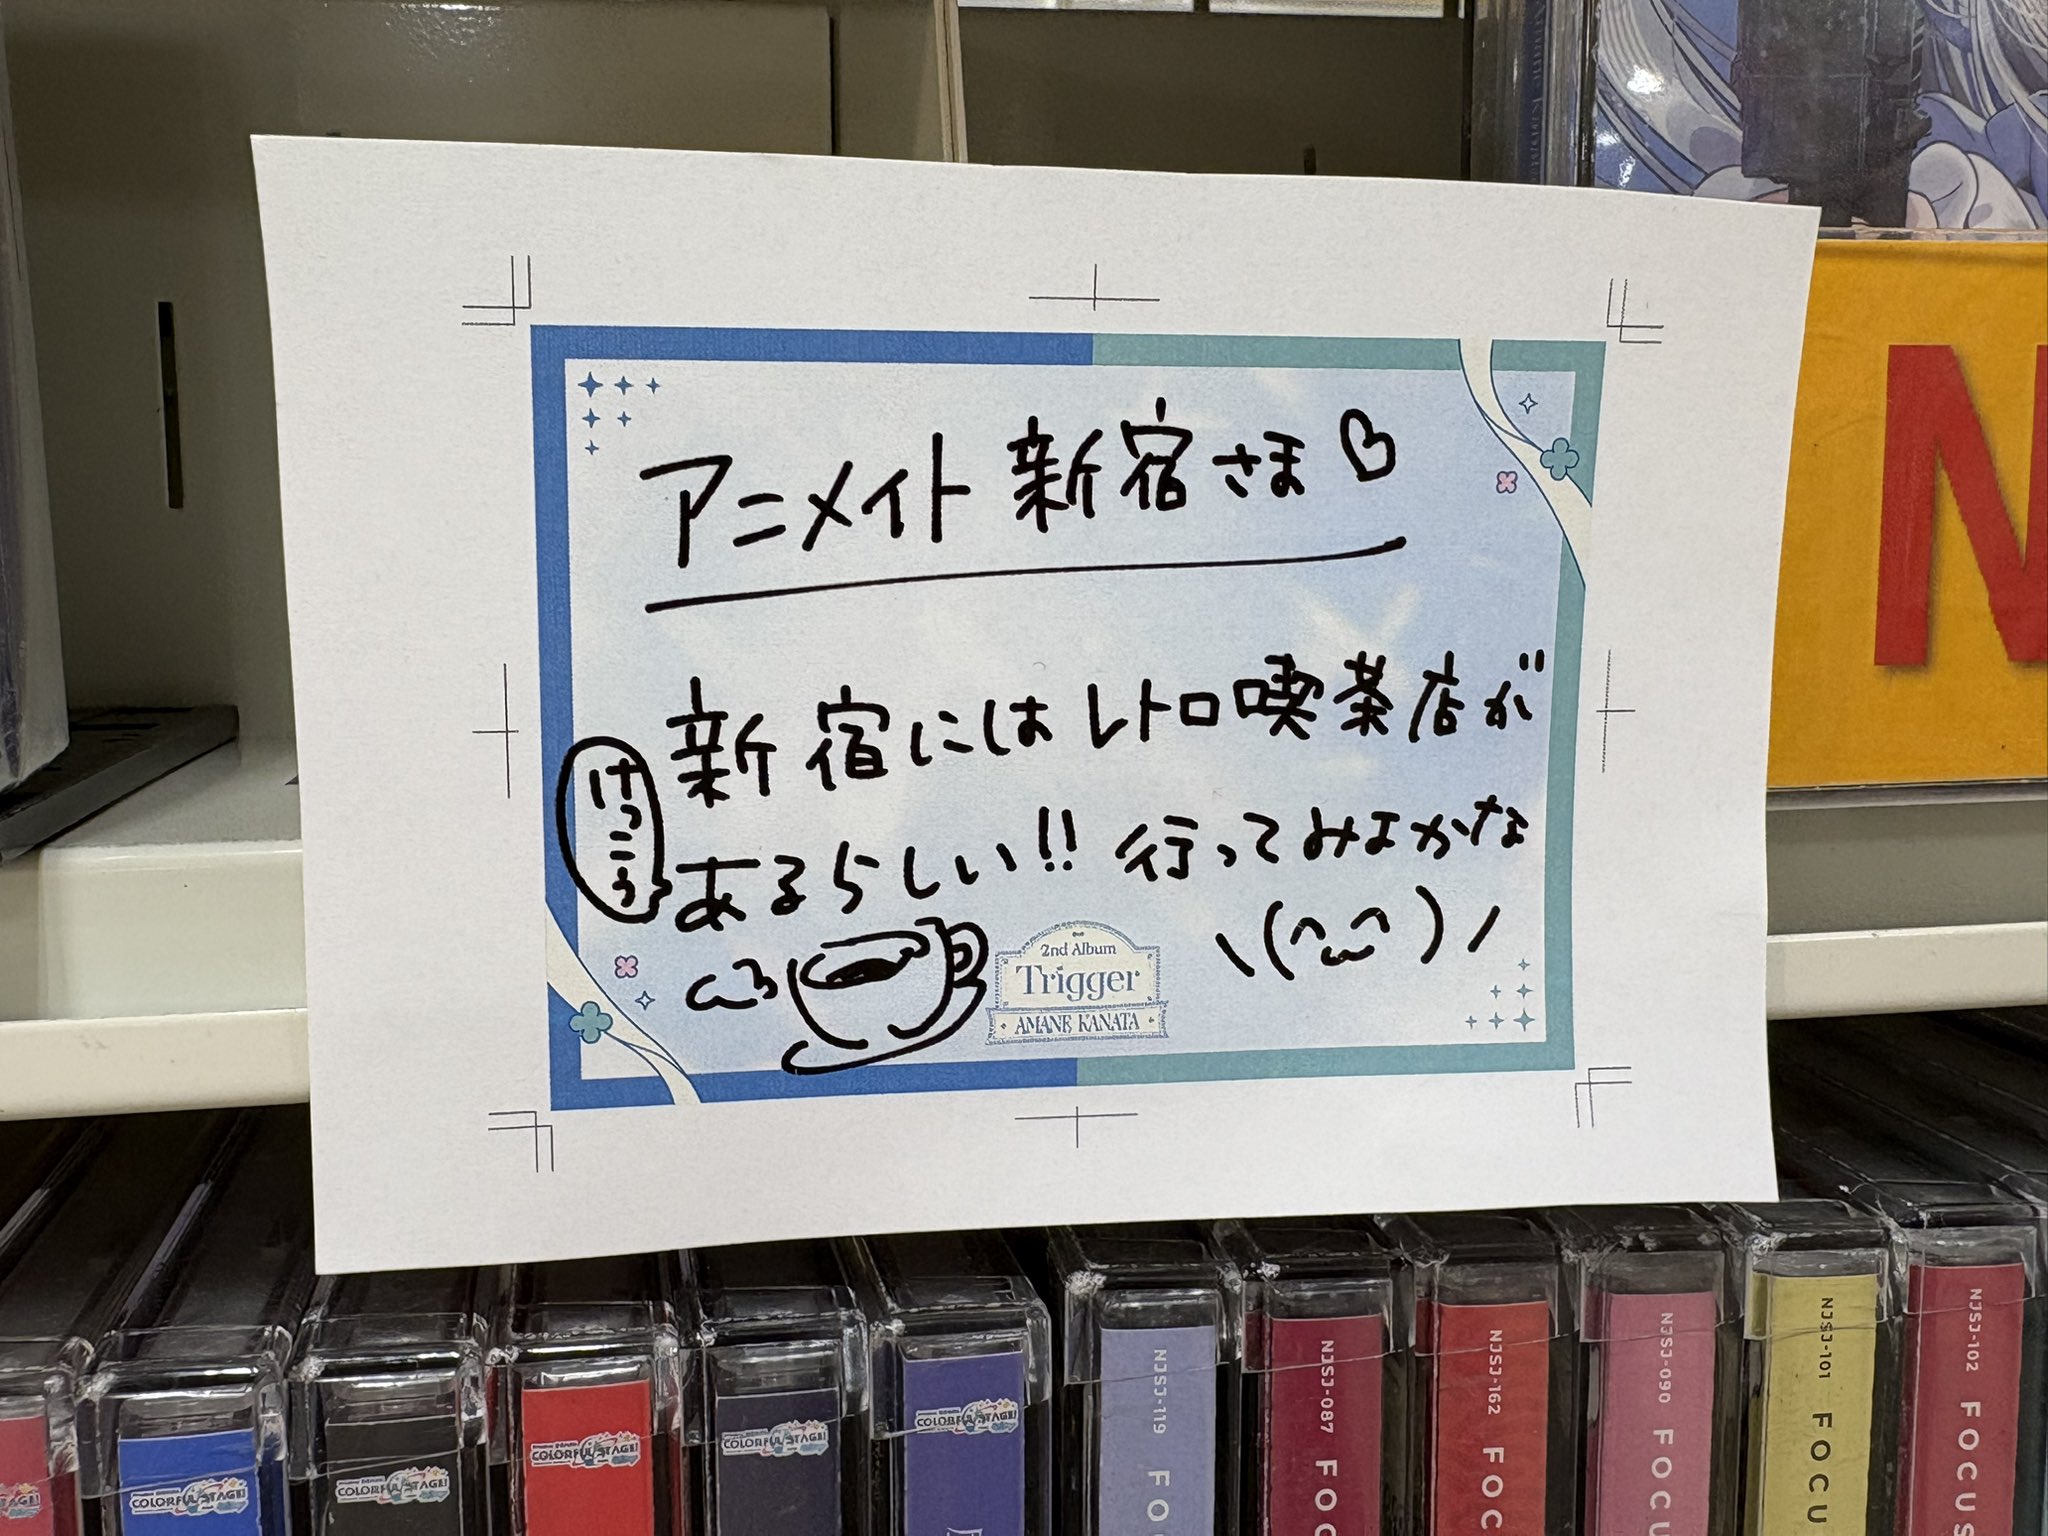 アニメイト新宿さま♡
新宿にはレトロ喫茶店が
けっこう
あるらしい!! 行ってみよかな
\(^ω^)/
2nd Album
Trigger
AMANE KANATA
N
COLORFUL STAGE!
COLORFUL STAGE!
COLORFUL STAGE!
COLORFUL STAGE!
COLORFUL STAGE!
NJSJ-119 FO
NJSJ-087 FO
NJSJ-162 FOC
NJSJ-090 FOCU
NJSJ-101 FOCUS
NJSJ-102 FOCUS